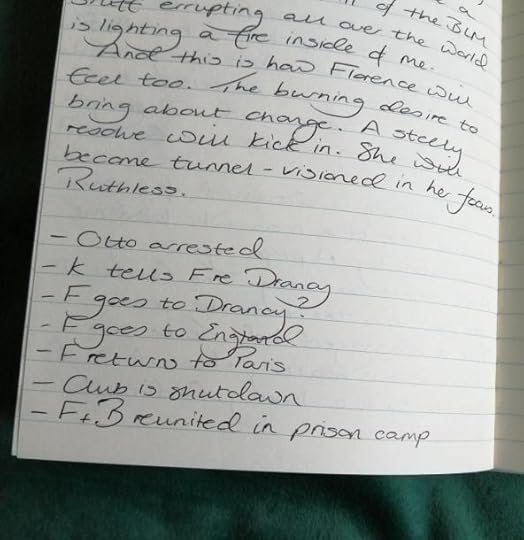 a
stuff errupting all over the world
of the BLM
is lighting a fire inside of me.
And this is how Florence will
feel too. The burning desire to
bring about change. A steely
resolve will kick in. She will
become tunnel-visioned in her focus.
Ruthless.
- Otto arrested
- K tells F re Drancy
- F goes to Drancy?
- F goes to England
- F returns to Paris
- Club is shutdown
- F + B reunited in prison camp